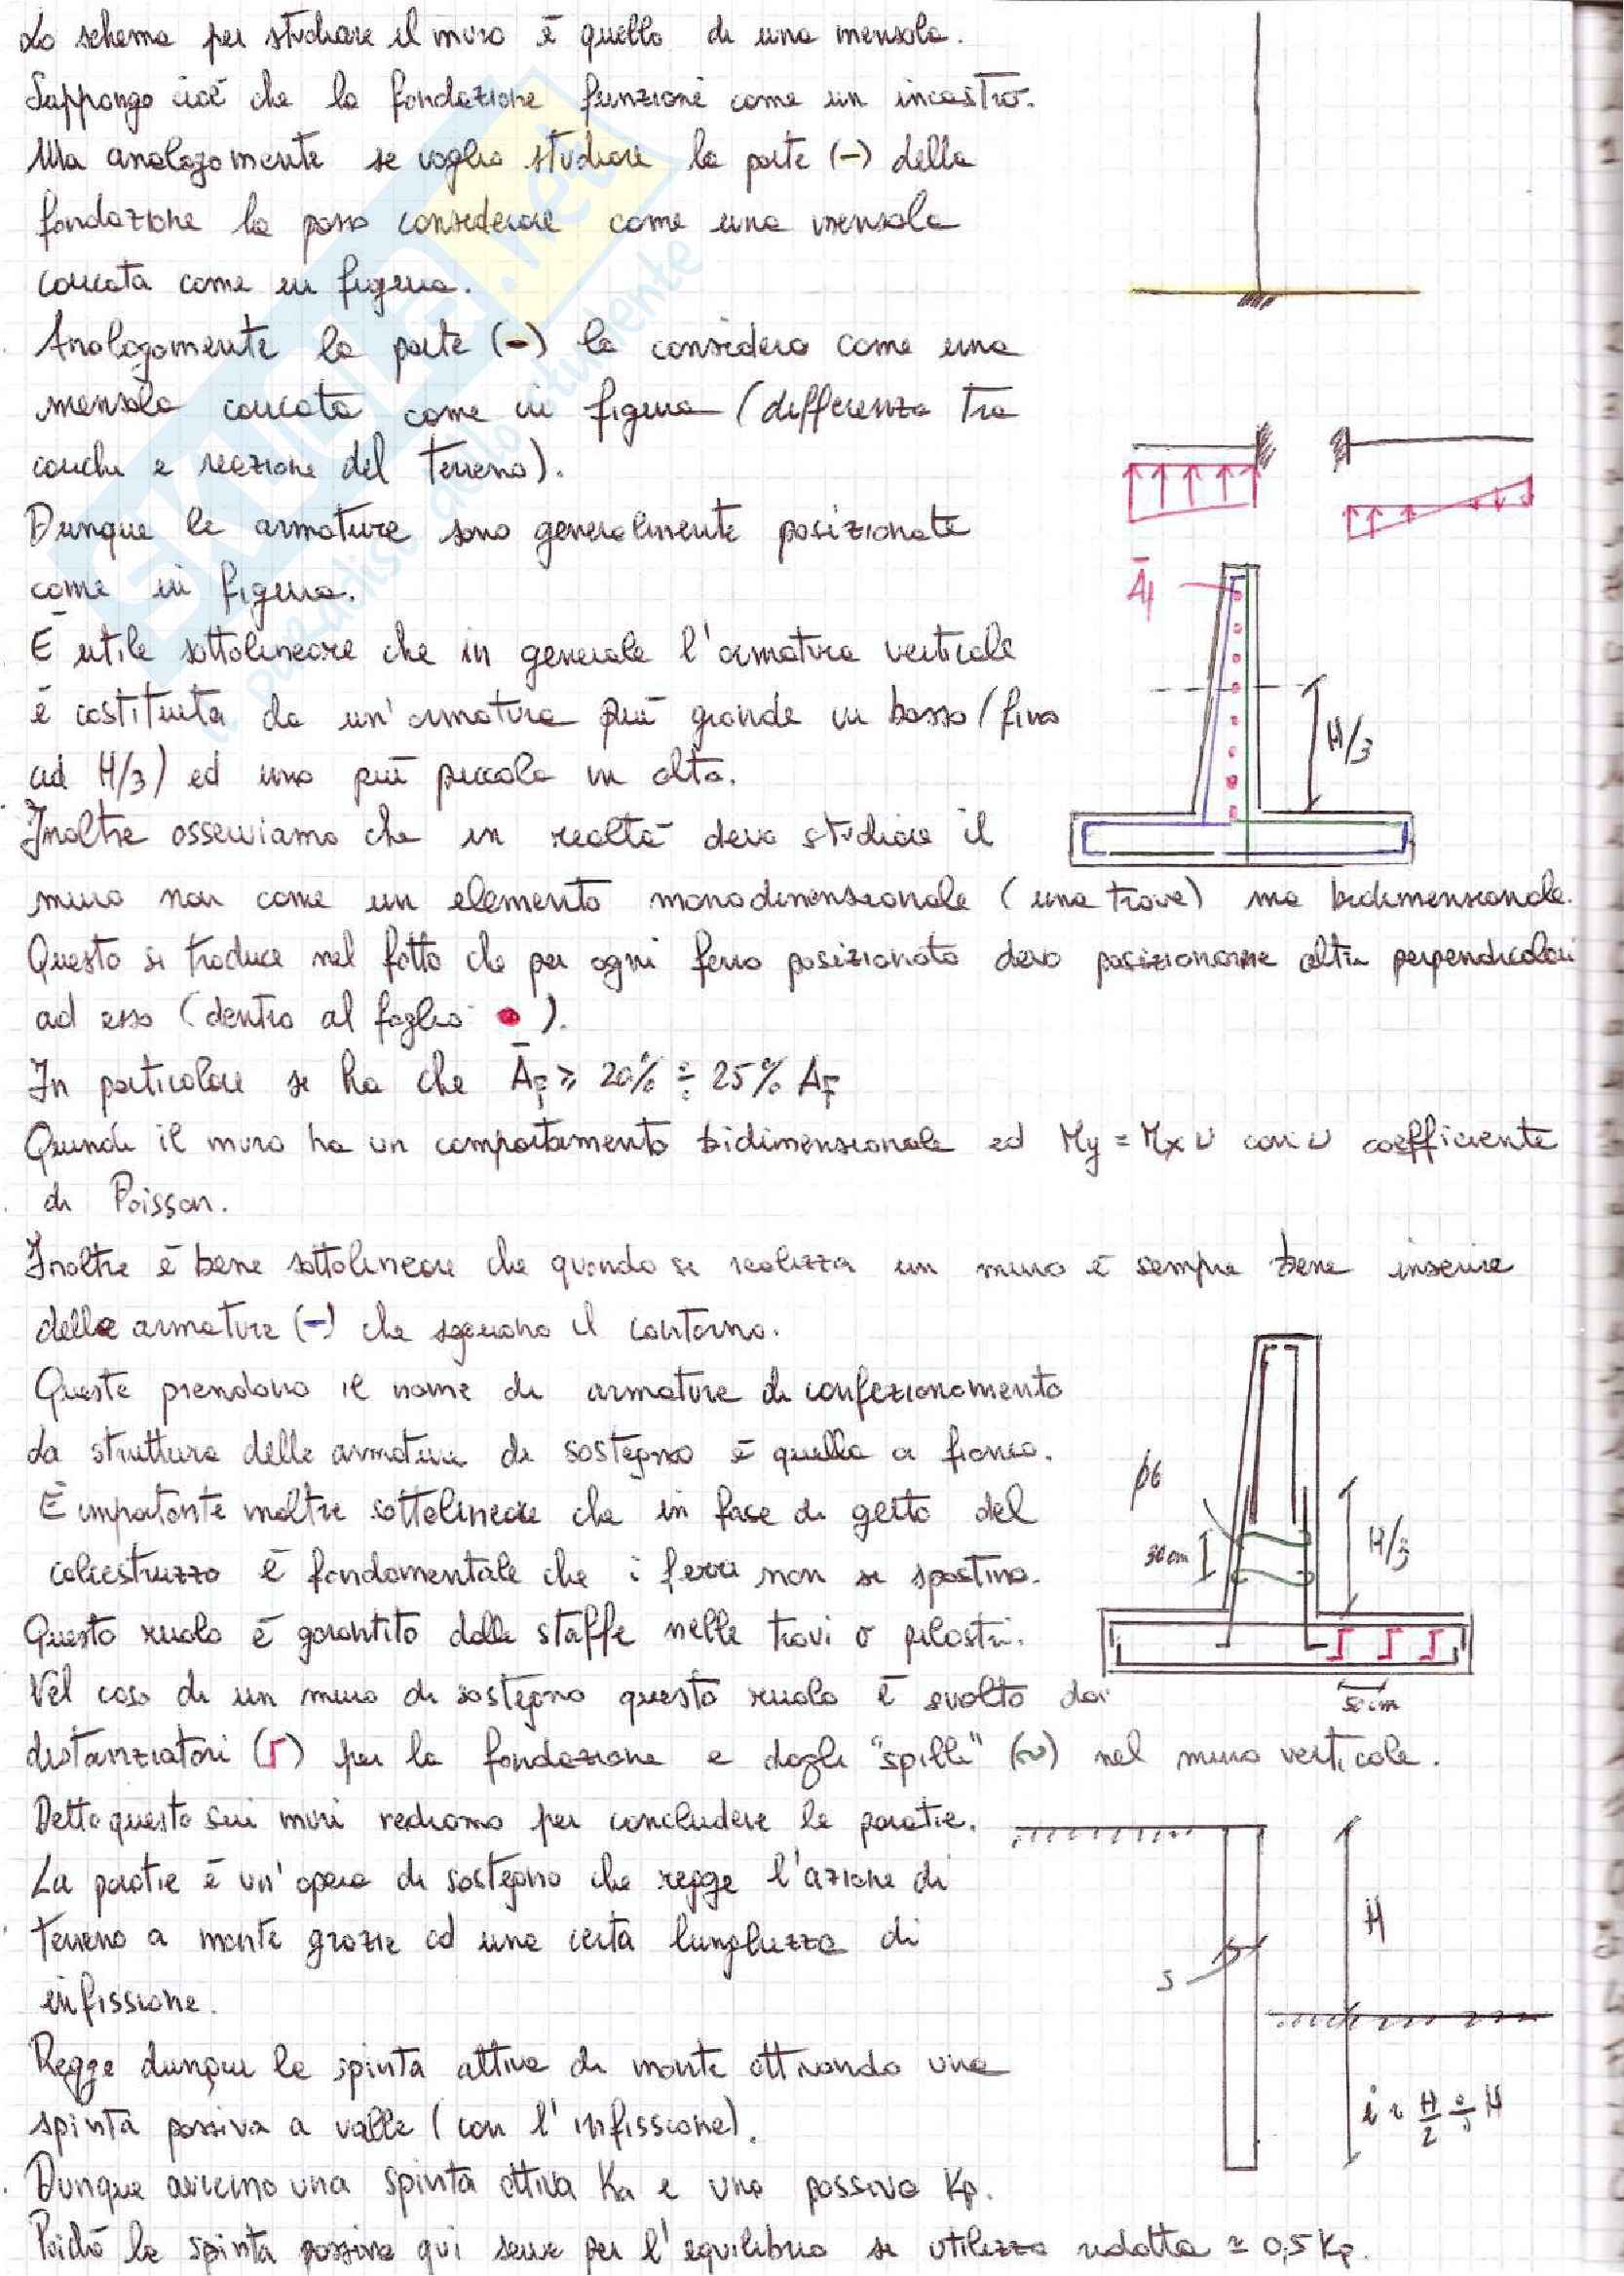 Lo schema per studiare il muro è quello di una mensola.
Suppongo cioè che la fondazione funzioni come un incastro.
Ma analogamente se voglio studiare la parte (-) della
fondazione la posso considerare come una mensola
caricata come in figura.
Analogamente la parte (-) la considero come una
mensola caricata come in figura (differenza tra
carichi e reazione del terreno).
Dunque le armature sono generalmente posizionate
come in figura.
Āf
È utile sottolineare che in generale l'armatura verticale
è costituita da un'armatura più grande in basso (fino
ad H/3) ed una più piccola in alto.
H/3
Inoltre osserviamo che in realtà devo studiare il
muro non come un elemento monodimensionale (una trave) ma bidimensionale.
Questo si traduce nel fatto che per ogni ferro posizionato devo posizionarne altri perpendicolari
ad esso (dentro al foglio •).
In particolare si ha che ĀF ≥ 20% ÷ 25% AF
Quindi il muro ha un comportamento bidimensionale ed My = Mx ν con ν coefficiente
di Poisson.
Inoltre è bene sottolineare che quando si realizza un muro è sempre bene inserire
delle armature (-) che seguano il contorno.
Queste prendono il nome di armature di confezionamento
La struttura delle armature di sostegno è quella a fianco.
È importante inoltre sottolineare che in fase di getto del
calcestruzzo è fondamentale che i ferri non si spostino.
Questo ruolo è garantito dalle staffe nelle travi o pilastri.
Nel caso di un muro di sostegno questo ruolo è svolto dai
distanziatori (ʃ) per la fondazione e dagli "spilli" (~) nel muro verticale.
ϕ6
H/3
50 cm
Detto questo sui muri vediamo per concludere le paratie.
La paratie è un'opera di sostegno che regge l'azione di
terreno a monte grazie ad una certa lunghezza di
infissione.
Regge dunque la spinta attiva di monte attivando una
spinta passiva a valle (con l'infissione).
Dunque avremo una spinta attiva Ka e una passiva Kp.
Poiché la spinta passiva qui serve per l'equilibrio si utilizza ridotta ≃ 0,5 Kp.
H
s
i ≃ H/2 ÷ H